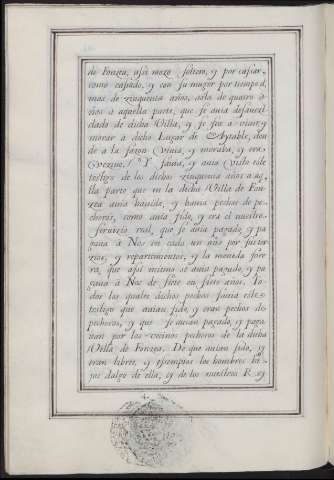 de Fonzea, assi mozo soltero, y por cassar,
como casado, y con su muger por tiempo de
mas de zinquenta años, asta de quatro a-
ños a aquella parte, que se avia desavez-
dado de dicha Villa, y se fue a vivir, y
morar a dicho Lugar de Ayzable, don
de a la sazon vivia, y moraba, y era
vezino. Y savia, y avia visto este
testigo de los dichos zinquenta años a aq-
lla parte que en la dicha Villa de Fon
zea avia havido, y havia pechos de pe-
cheros, como avia sido, y era el nuestro
servizio real, que se avia pagado, y pa
gava a Nos en cada un año por sus ter
zios, y repartimientos, y la moneda fore
ra, que assi mismo se avia pagado, y pa
gava a Nos de siete en siete años. To-
dos los quales dichos pechos savia este
testigo que avian sido, y eran pechos de
pecheros, y que se avian pagado, y paga
van por los vezinos pecheros de la dicha
Villa de Fonzea. De que avian sido, y
eran libres, y essemptos los hombres hi
jos dalgo de ella, y de los nuestros R. y